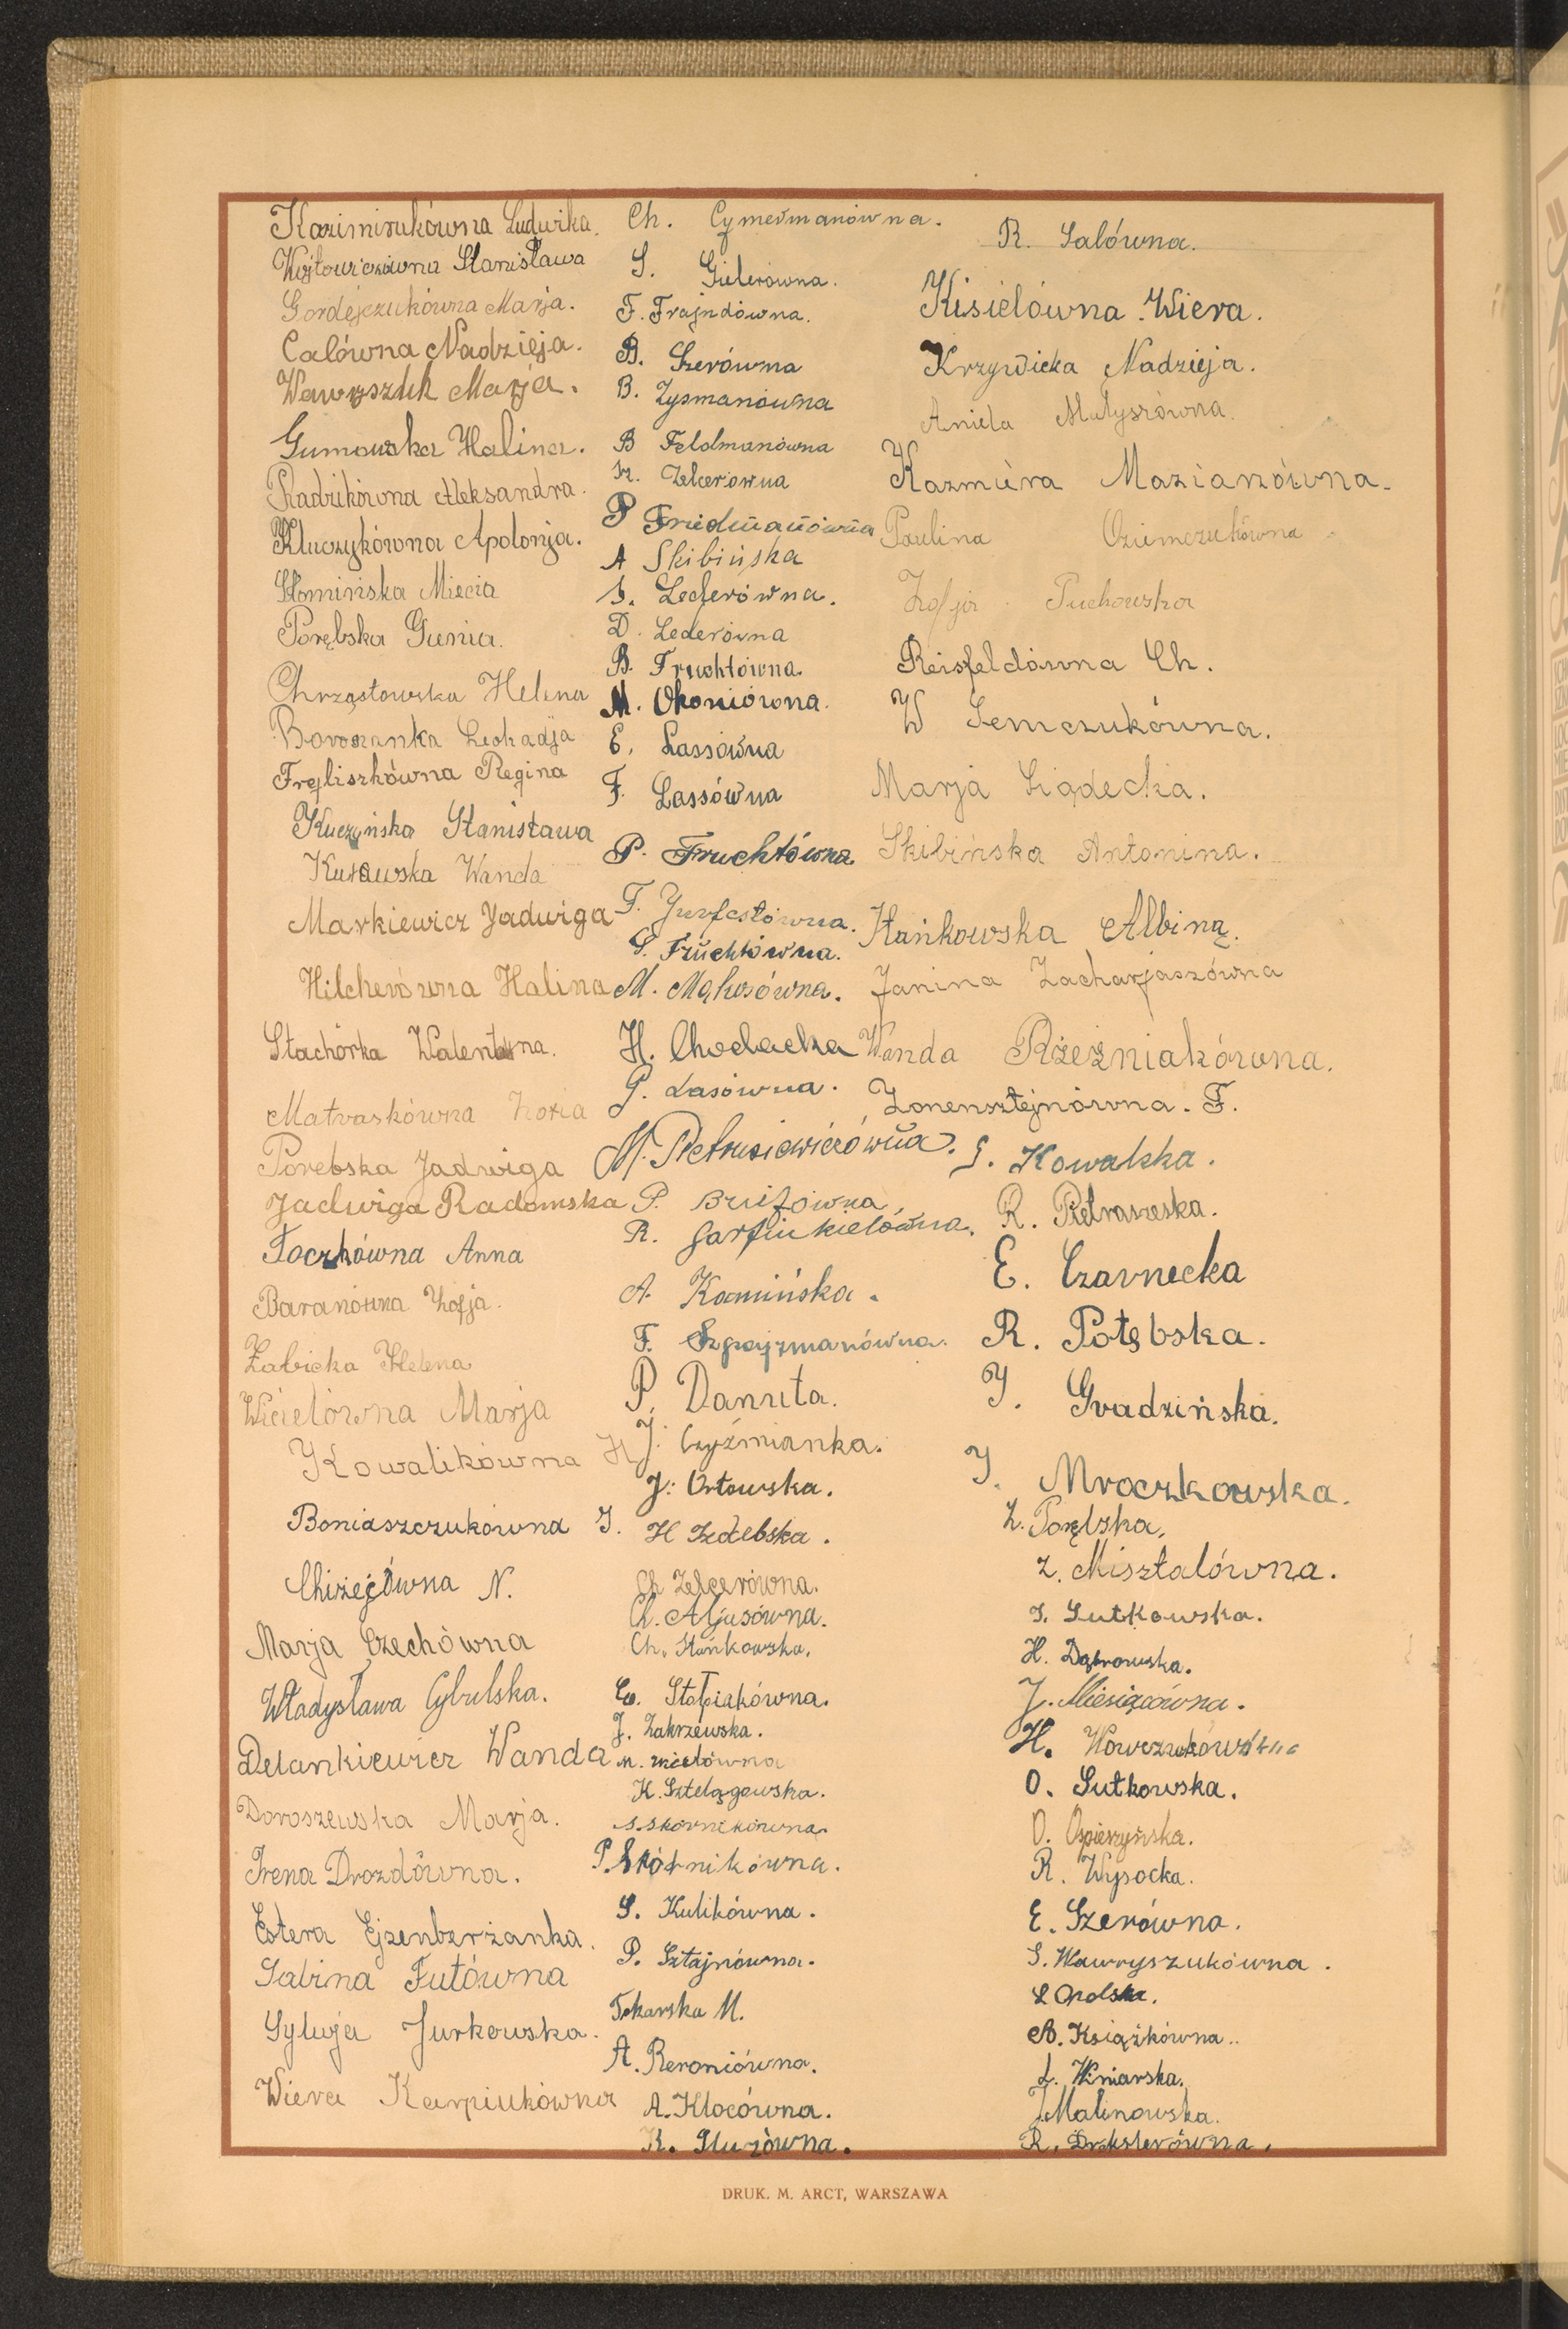 Kazimirukówna Ludwika.
Wójtowiczówna Stanisława
Gordejczukówna Marja.
Calówna Nadzieja.
Wawryszuk Marja.
Gumowska Halina.
Radzikówna Aleksandra.
Kluczykówna Apolonja.
Słomińska Miecia
Porębska Gunia.
Chrząstowska Helena
Boroszanka Leokadja
Fręliszkówna Regina
Kuczyńska Stanisława
Kurawska Wanda
Markiewicz Jadwiga
Hilcherówna Halina
Stachórka Walentyna.
Matraskówna Zofia
Porębska Jadwiga
Jadwiga Radomska
Toczkówna Anna
Baranówna Zofja.
Żabicka Helena
Wicielówna Marja
Kowalikówna H
Boniaszczukówna J.
Chizejówna N.
Marja Czechówna
Władysława Cybulska.
Delankiewicz Wanda
Doroszewska Marja.
Irena Drozdówna.
Estera Ejzenberżanka.
Sabina Futówna
Sylwja Jurkowska.
Wiera Karpiukówna
Ch. Cymermanówna.
S. Gielerówna.
F. Frajndówna.
B. Szerówna
B. Zysmanówna
B Feldmanówna
Sz. Zelcerowna
P Friedmanówna
A Skibińska
S. Lederówna.
D. Lederówna
B. Fruchtówna.
M. Okoniówna.
E. Lassówna
F. Lassówna
P. Fruchtówna
F. Jurfestówna.
G. Fruchtówna.
M. Mąkosówna.
H. Chodacka
G. Lasówna.
M. Pietrusiewiczówna.
P. Brifówna,
R. Garfinkielówna.
A. Kamińska.
F. Szpajzmanówna.
P. Danuta.
J. Czyźmianka.
J. Orłowska.
H Izdebska.
Ch Zelcerówna.
Ch. Aljasówna.
Ch. Stańkowska.
Eo. Stołpiakówna.
J. Zakrzewska.
M. Micelówna
K. Sztelągowska.
S. Skórnikówna.
P. Skórnikówna.
S. Kulikówna.
P. Sztajnówna.
Tokarska M.
A. Reroniówna.
A. Klocówna.
K. Sluzówna.
R. Salówna.
Kisielówna Wiera.
Krzywicka Nadzieja.
Aniela Matyszówna.
Kazmiéra Mazianówna.
Paulina Oziemczukówna
Zofja Puchowska
Reisfeldówna Ch.
W Semczukówna.
Marja Siądecka.
Skibińska Antonina.
Stańkowska Albiną.
Janina Zacharjaszówna
Wanda Rżeżniakówna.
Zonensztejnówna. F.
S. Kowalska.
R. Pietraszeska.
E. Czarnecka
R. Potębska.
J. Gradzińska.
J. Mroczkowska.
Z. Porębska,
Z. Misztalówna.
J. Sutkowska.
H. Dąbrowska.
J. Miesiącówna.
H. Wowczukówna
O. Sutkowska.
O. Opieszyńska.
R. Wysocka.
E. Szerówna.
S. Wawryszukówna.
L Opolska.
A. Książkówna..
L. Winiarska.
J Malinowska.
R. Drekslerówna.
DRUK. M. ARCT, WARSZAWA